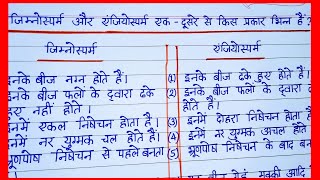 जिम्नोस्पर्म और एंजियोस्पर्म एक-दूसरे से किस प्रकार भिन्न हैं?
जिम्नोस्पर्म एंजियोस्पर्म
इनके बीज नग्न होते हैं। (1) इनके बीज ढके हुए होते हैं।
इनके बीज फलों के द्वारा ढके (2) इनके बीज फलों के द्वारा
हुए नहीं होते। होते हैं।
इनमें एकल निषेचन होता है। (3) इनमें दोहरा निषेचन होता
इनमें नर युग्मक चल होते हैं। (4) इनमें नर युग्मक अचल होते
भ्रूणपोष निषेचन से पहले बनता (5) भ्रूणपोष निषेचन के बाद बन
मक्की आदि